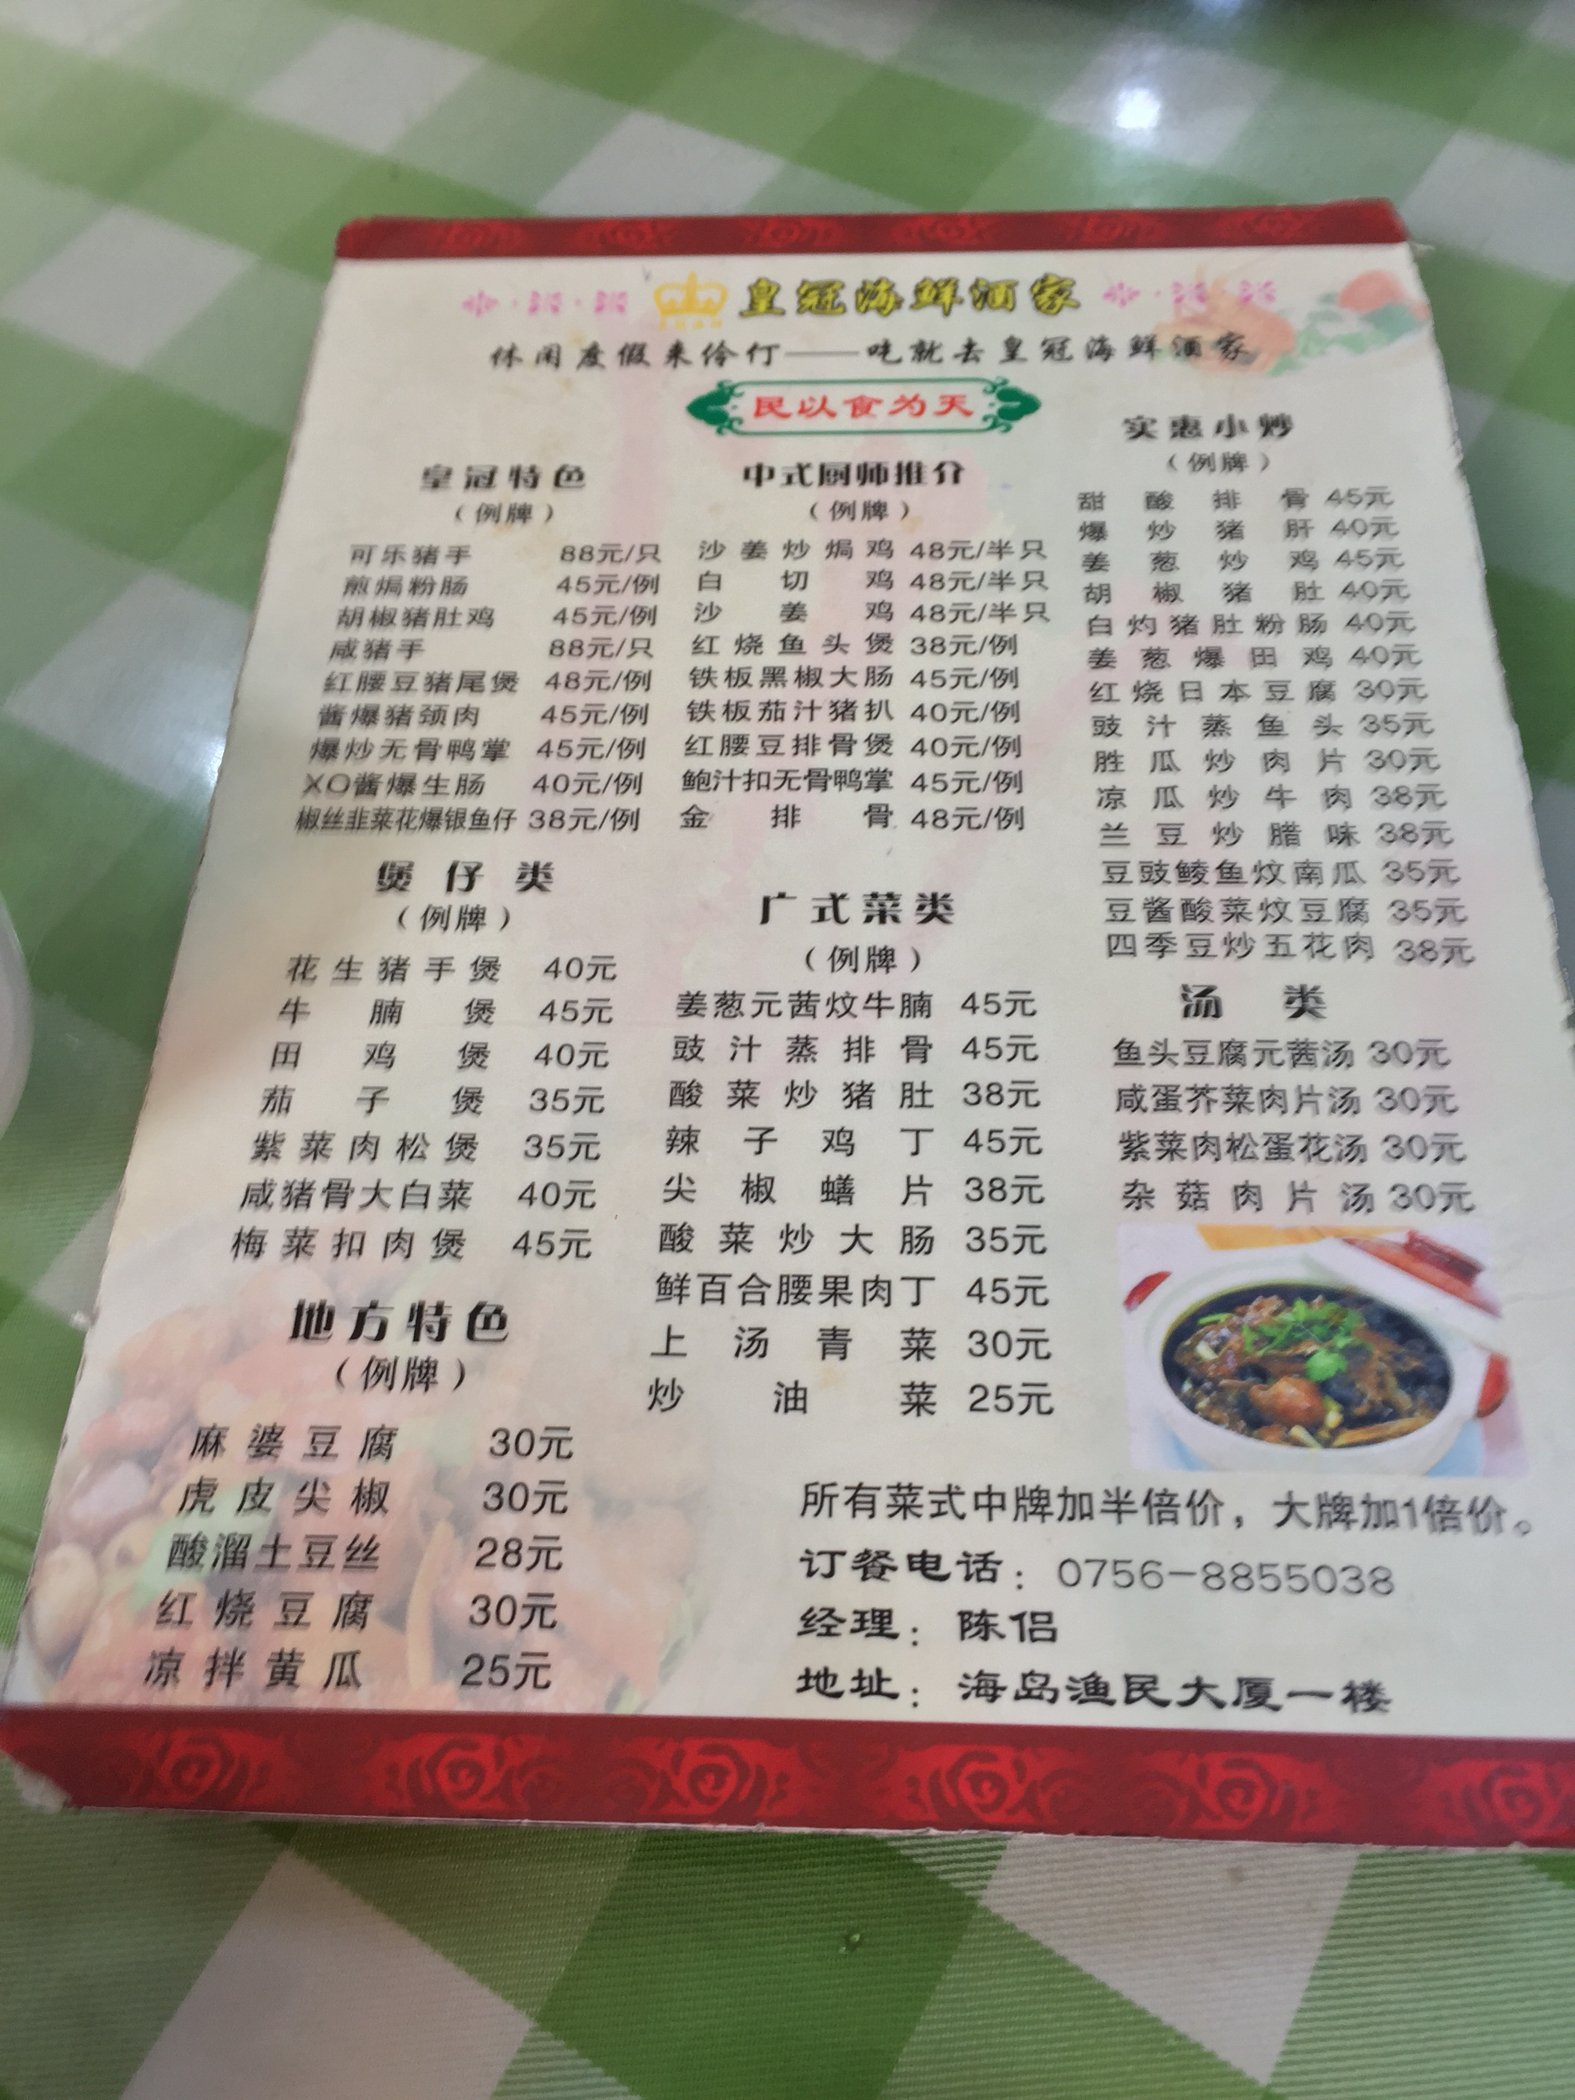 皇冠海鲜酒家
休闲度假来伶仃——吃就去皇冠海鲜酒家
民以食为天
皇冠特色
（例牌）
可乐猪手 88元/只
煎焗粉肠 45元/例
胡椒猪肚鸡 45元/例
咸猪手 88元/只
红腰豆猪尾煲 48元/例
酱爆猪颈肉 45元/例
爆炒无骨鸭掌 45元/例
XO酱爆生肠 40元/例
椒丝韭菜花爆银鱼仔 38元/例
煲仔类
（例牌）
花生猪手煲 40元
牛腩煲 45元
田鸡煲 40元
茄子煲 35元
紫菜肉松煲 35元
咸猪骨大白菜 40元
梅菜扣肉煲 45元
地方特色
（例牌）
麻婆豆腐 30元
虎皮尖椒 30元
酸溜土豆丝 28元
红烧豆腐 30元
凉拌黄瓜 25元
中式厨师推介
（例牌）
沙姜炒焗鸡 48元/半只
白切鸡 48元/半只
沙姜鸡 48元/半只
红烧鱼头煲 38元/例
铁板黑椒大肠 45元/例
铁板茄汁猪扒 40元/例
红腰豆排骨煲 40元/例
鲍汁扣无骨鸭掌 45元/例
金排骨 48元/例
广式菜类
（例牌）
姜葱元茜炆牛腩 45元
豉汁蒸排骨 45元
酸菜炒猪肚 38元
辣子鸡丁 45元
尖椒蟮片 38元
酸菜炒大肠 35元
鲜百合腰果肉丁 45元
上汤青菜 30元
炒油菜 25元
实惠小炒
（例牌）
甜酸排骨 45元
爆炒猪肝 40元
姜葱炒鸡 45元
胡椒猪肚 40元
白灼猪肚粉肠 40元
姜葱爆田鸡 40元
红烧日本豆腐 30元
豉汁蒸鱼头 35元
胜瓜炒肉片 30元
凉瓜炒牛肉 38元
兰豆炒腊味 38元
豆豉鲮鱼炆南瓜 35元
豆酱酸菜炆豆腐 35元
四季豆炒五花肉 38元
汤类
鱼头豆腐元茜汤 30元
咸蛋芥菜肉片汤 30元
紫菜肉松蛋花汤 30元
杂菇肉片汤 30元
所有菜式中牌加半倍价，大牌加1倍价。
订餐电话：0756-8855038
经理：陈侣
地址：海岛渔民大厦一楼